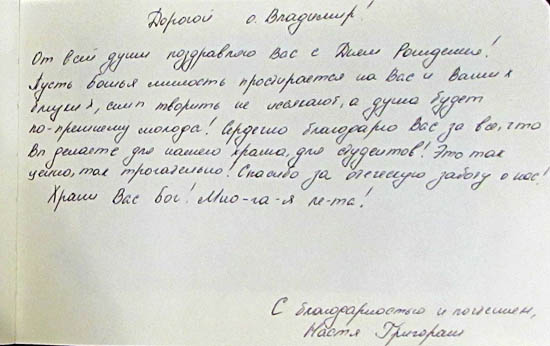 Дорогой о. Владимир!
От всей души поздравляю Вас с Днем Рождения!
Пусть божья милость простирается на Вас и Ваших
близких, силы творить не иссякают, а душа будет
по-прежнему молода! Сердечно благодарю Вас за все, что
Вы делаете для нашего храма, для студентов! Это так
ценно, так трогательно! Спасибо за отеческую заботу о нас!
Храни Вас Бог! Мно-га-я ле-та!
С благодарностью и почтением,
Настя Григораш